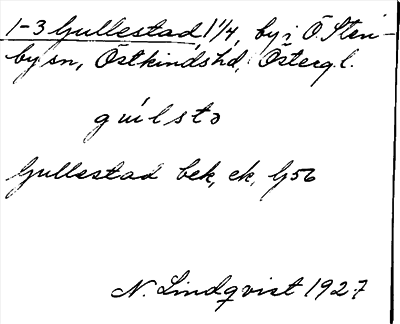 1-3 Gullestad 1 1/4, by i Ö. Sten-
by sn, Östkinds hd, Östergl.
guilsta
Gullestad bek, ek, G56
N. Lindqvist 1927